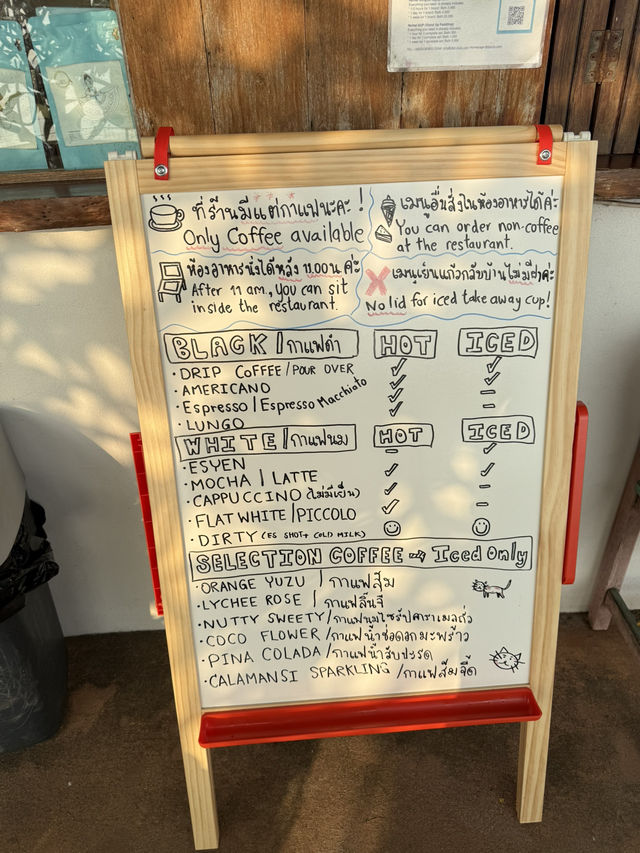 ที่ร้านมีแต่กาแฟนะคะ !
Only Coffee available
เมนูอื่นสั่งในห้องอาหารได้ค่ะ
You can order non-coffee
at the restaurant.
ห้องอาหารนั่งได้หลัง 11.00น ค่ะ
After 11 am, you can sit
inside the restaurant.
เมนูเย็นแก้วกลับบ้านไม่มีฝาค่ะ
No lid for iced take away cup!
BLACK / กาแฟดำ HOT ICED
· DRIP COFFEE / POUR OVER ✓ ✓
· AMERICANO ✓ ✓
· Espresso / Espresso Macchiato ✓ –
· LUNGO ✓ –
WHITE / กาแฟนม HOT ICED
· ESYEN – ✓
· MOCHA / LATTE ✓ ✓
· CAPPUCCINO (ไม่มีเย็น) ✓ –
· FLAT WHITE / PICCOLO ✓ –
· DIRTY (ES SHOT + COLD MILK)
SELECTION COFFEE → Iced Only
· ORANGE YUZU / กาแฟส้ม
· LYCHEE ROSE / กาแฟลิ้นจี่
· NUTTY SWEETY / กาแฟนมไซรัปคาราเมลถั่ว
· COCO FLOWER / กาแฟน้ำช่อดอกมะพร้าว
· PINA COLADA / กาแฟน้ำสับปะรด
· CALAMANSI SPARKLING / กาแฟส้มจี๊ด